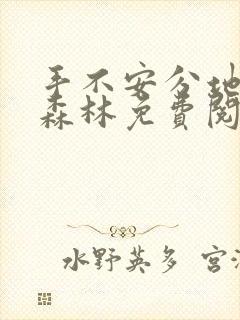 手不安分地
森林免费阅
水野英多 宫